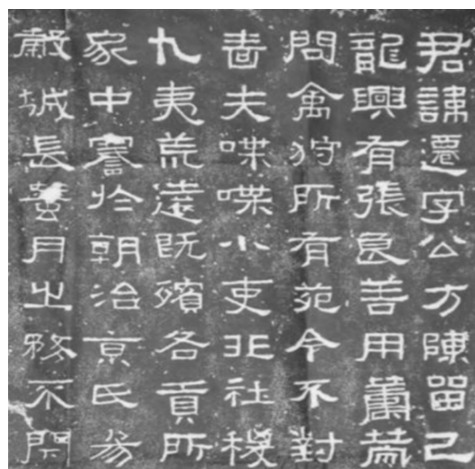 君諱遷字公方陳留己
龍興有張良善用籌策
問禽狩所有苑令不對
嗇夫喋喋小吏非社稷
九夷荒遠既殯各貢所
家中謇於朝治京氏易
穀城長蠶月之務不閉